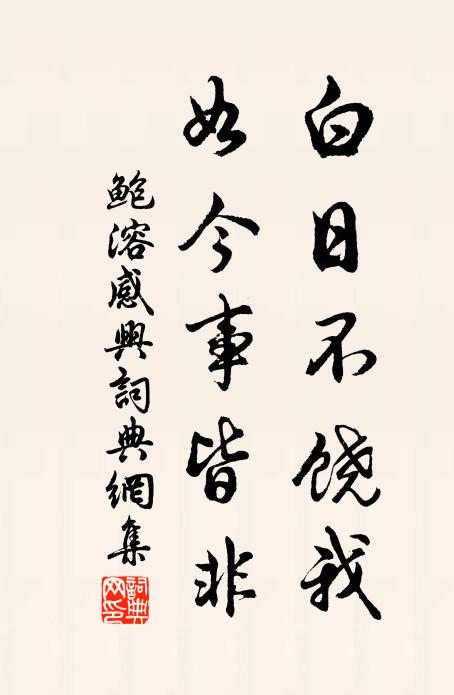 白日不饶我
如今事皆非
鲍溶感興詞典網集
詞典網印